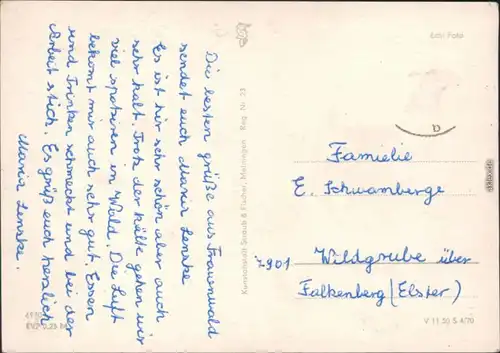 Die besten Grüße aus Frauenwald
sendet euch Maria Lenske
Es ist hir sehr schön aber auch
sehr kalt Trotz der kälte gehen wir
viel spatziren im Wald. Die Luft
bekomt mir auch sehr gut. Essen
und Trinken schmeckt und bei der
Arbeit stich. Es grüß euch herzlich
Maria Lenske.
Kunstanstalt Straub & Fischer, Meiningen Reg. Nr. 23
Echt Foto
Familie
E. Schwamberge
7901 Wildgrube über
Falkenberg (Elster)
EVP 0,25
V 11 50 S 4/70